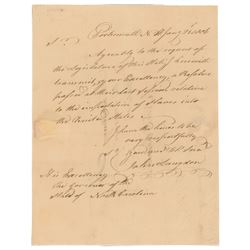 Portsmouth N H Jany 1806
Sir
Agreeably to the request of
the Legislature of this State, I herewith
transmit, your Excellency, a Resolve
passed at their last session relative
to the importation of Slaves into
the United States
I have the honor to be
very respectfully
John Langdon
His Excellency
the Governor of the
State of North Carolina